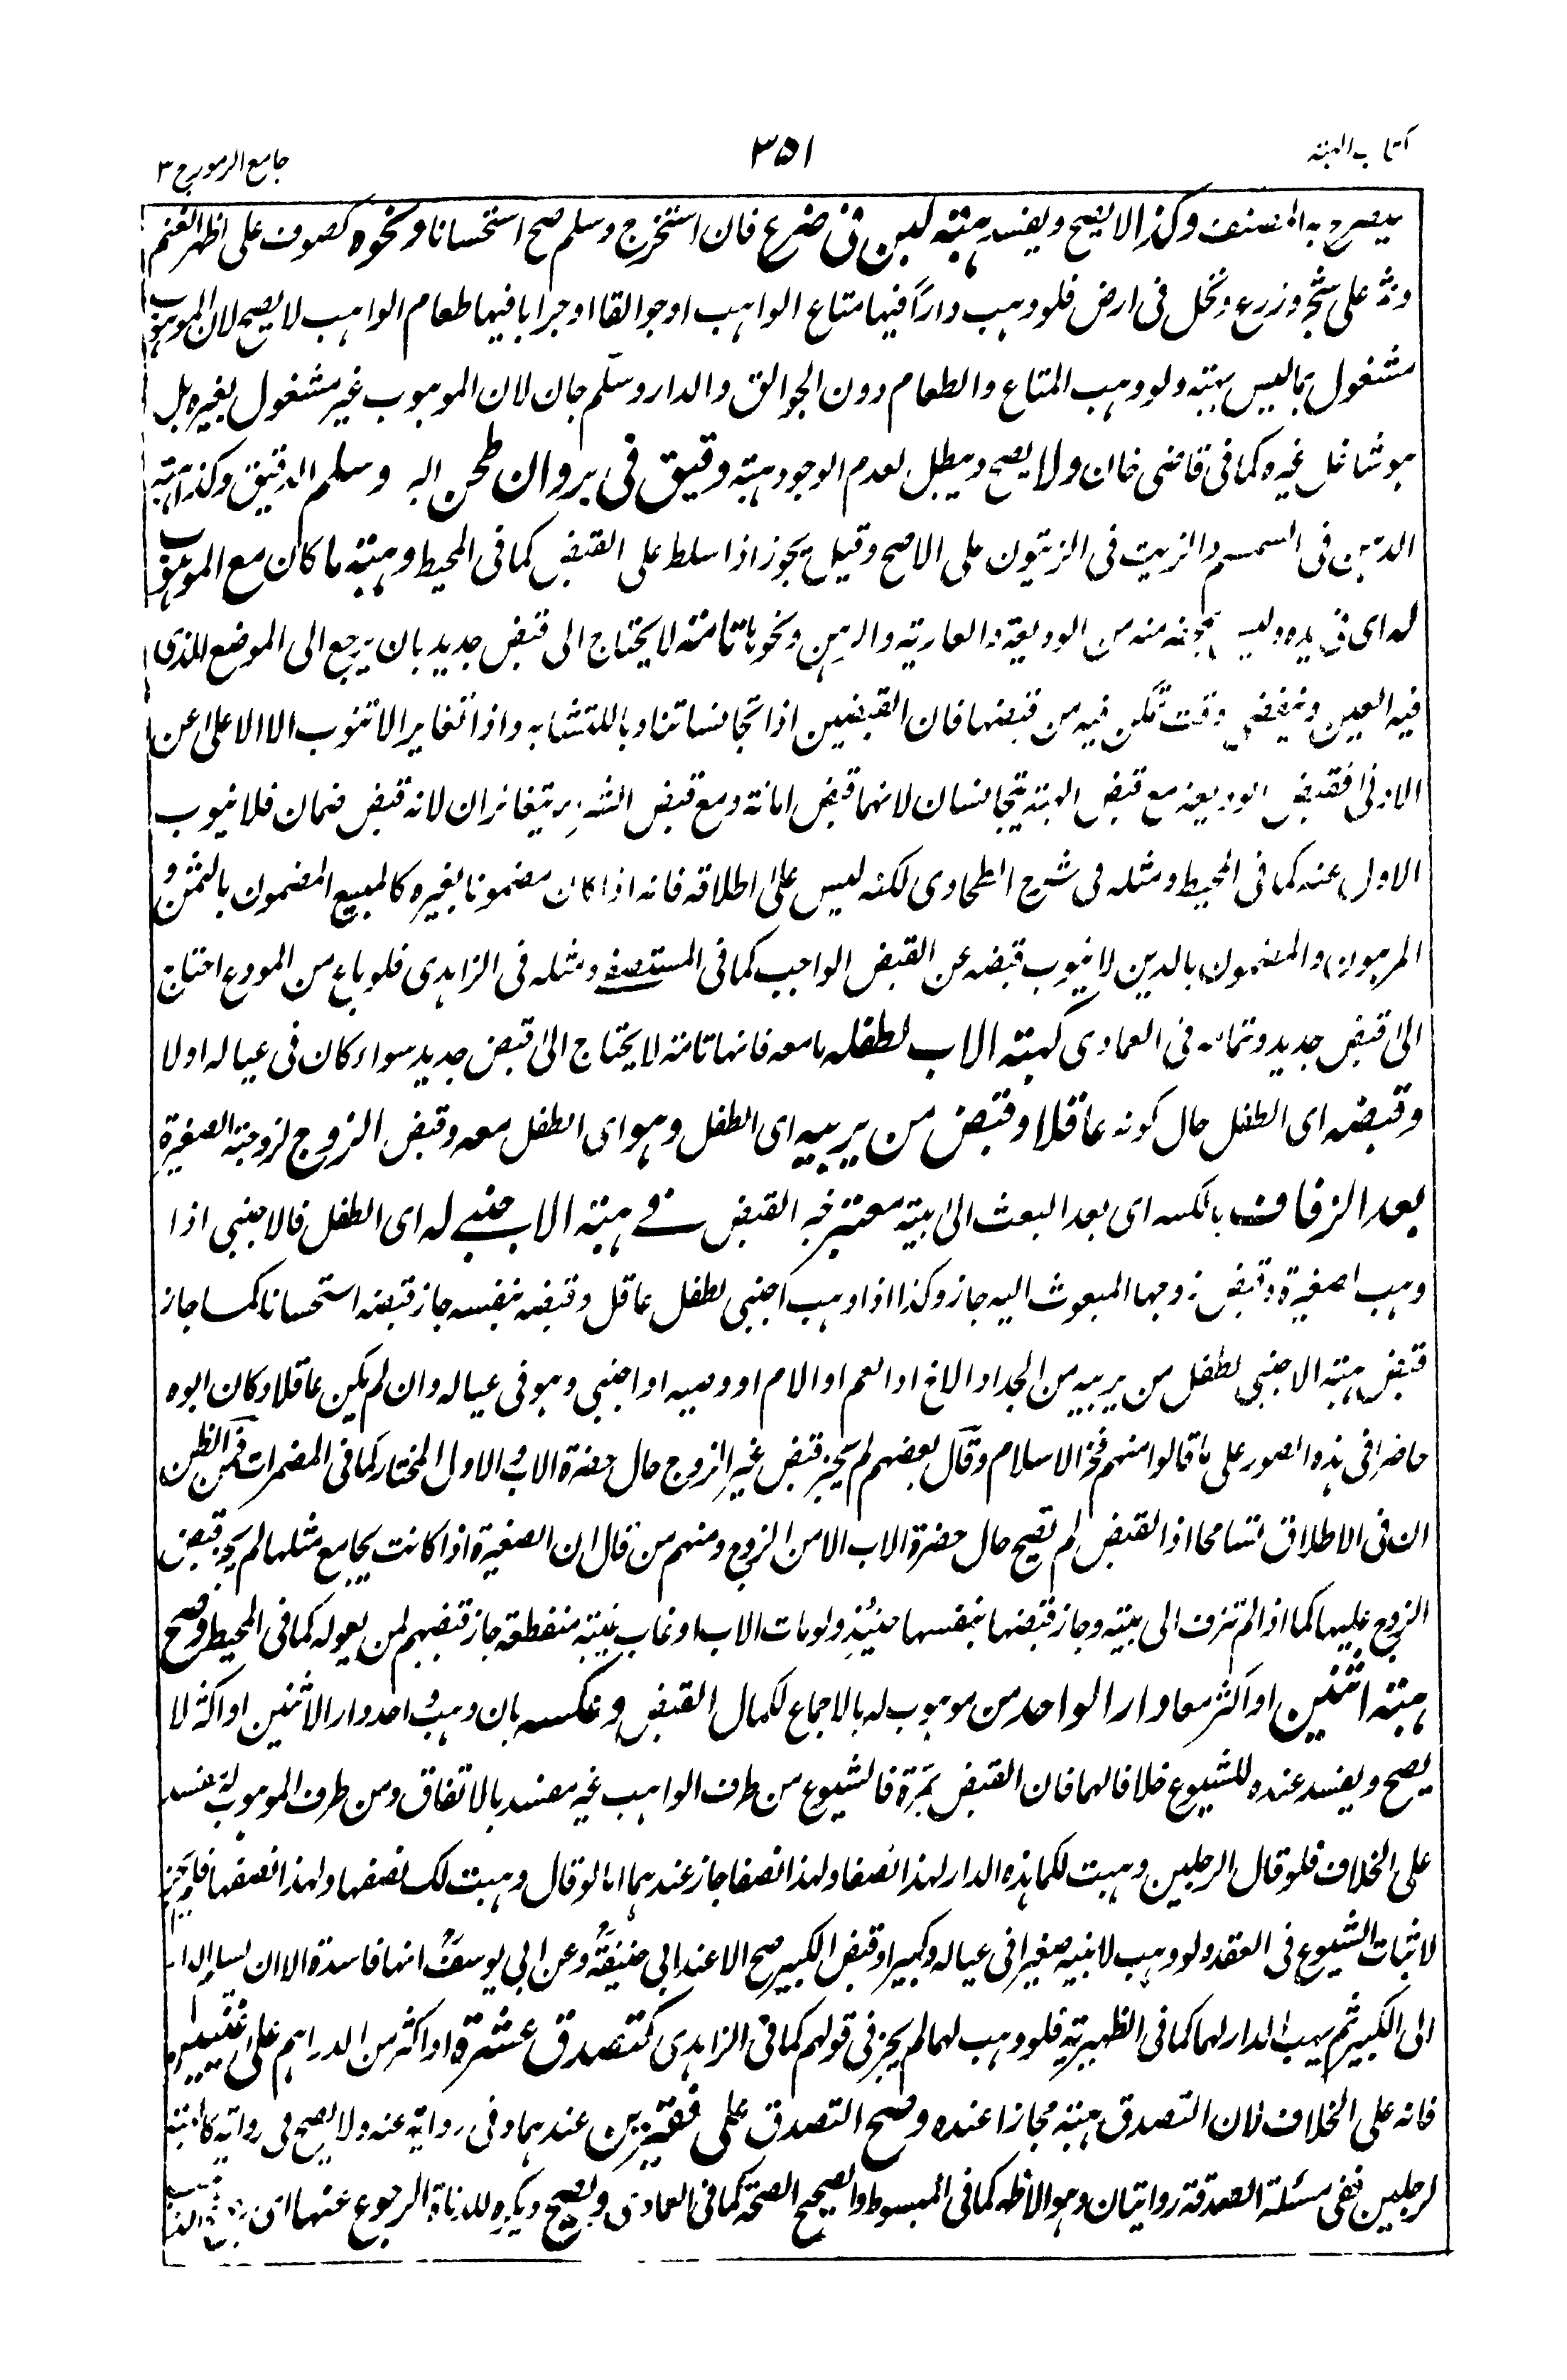 كتاب الهبة
٣٥١
جامع الرموز ج ٣
يصرح به المصنف وكذا لا يصح ويفسد هبة لبن في ضرع فان استخرج وسلم صح استحسانا ونحوه كصوف على اظهر الغنم
وثمر على شجر وزرع ونخل فى ارض فلو وهب دارا فيها متاع الواهب او جوالقا او جرابا فيها طعام الواهب لا يصح لان الموهوب
مشغول بما ليس بهبة ولو وهب المتاع والطعام دون الجوالق والدار وسلم جاز لان الموهوب غير مشغول بغيره بل
هو شاغل غيره كما فى قاضى خان ولا يصح ويبطل لعدم الوجود هبة دقيق فى بر وان طحن البر وسلم الدقيق وكذا هبة
الدهن فى السمسم والزيت فى الزيتون على الاصح وقيل يجوز اذا سلط على القبض كما فى المحيط وهبة ما كان مع الموهوب
له اى فى يده من الوديعة والعارية والرهن ونحوها تامة لا يحتاج الى قبض جديد بان يرجع الى الموضع الذى
فيه العين وينقض وقت تمكن فيه من قبضها فان القبضين اذا تجانسا تناوبا للتشابه واذا تغايرا لا تنوب الا الاعلى عن
الادنى فقبض الوديعة مع قبض الهبة يتجانسان لانهما قبض امانة ومع قبض الشراء يتغايران لانه قبض ضمان فلا ينوب
الاول عنه كما فى المحيط ومثله فى شرح الطحاوى لكنه ليس على اطلاقه فانه اذا كان مضمونا بغيره كالمبيع المضمون بالثمن و
المرهون والمضمون بالدين لا ينوب قبضه عن القبض الواجب كما فى المستصفى ومثله فى الزاهدى فلو باع من المودع احتاج
الى قبض جديد وتمامه فى العمادى كهبة الاب لطفله ما معه فانها تامة لا يحتاج الى قبض جديد سواء كان فى عياله او لا
وقبضه اى الطفل حال كونه عاقلا وقبض من يربيه اى الطفل وهو اى الطفل معه وقبض الزوج لزوجته الصغيرة
بعد الزفاف بالكسر اى بعد البعث الى بيته معتبر خبر القبض فى هبة الاجنبى له اى الطفل فالاجنبى اذا
وهب لصغيرة وقبض زوجها المبعوث اليه جاز وكذا اذا وهب اجنبى لطفل عاقل وقبضه بنفسه جاز قبضه استحسانا كما جاز
قبض هبة الاجنبى لطفل من يربيه من الجد او الاخ او العم او الام او وصيه او اجنبى وهو فى عياله وان لم يكن عاقلا وكان ابوه
حاضرا فى هذه الصور على ما قالوا منهم فخر الاسلام وقال بعضهم لم يجز قبض غير الزوج حال حضرة الاب والاول المختار كما فى المضمرات فمن الظن
ان فى الاطلاق تسامحا اذ القبض لم تصح حال حضرة الاب الا من الزوج ومنهم من قال ان الصغيرة اذا كانت يجامع مثلها لم يجز قبض
الزوج عليها كما اذا لم تزف الى بيته وجاز قبضها بنفسها حينئذ ولو مات الاب او غاب غيبة منقطعة جاز قبضهم لمن يعوله كما فى المحيط وصح
هبة اثنين او اكثر معا دارا لواحد من موهوب له بالاجماع لكمال القبض وعكسه بان وهب احد دارا لاثنين او اكثر لا
يصح ويفسد عنده للشيوع خلافا لهما فان القبض بمرة فالشيوع من طرف الواهب غير مفسد بالاتفاق ومن طرف الموهوب له مفسد
على الخلاف فلو قال الرجلين وهبت لكما هذه الدار لهذا نصفا ولهذا نصفا جاز عندهما اما لو قال وهبت لك نصفها ولهذا نصفها فلم يجز
لاثبات الشيوع فى العقد ولو وهب لابنيه صغيرا فى عياله وكبيرا وقبض الكبير صح الا عند ابى حنيفة وعن ابى يوسف انها فاسدة الا ان يسلم الدار
الى الكبير ثم يهب الدار لهما كما فى الظهيرية فلو وهب لهما لم يجز فى قولهم كما فى الزاهدى كتصدق عشرة او اكثر من الدراهم على غنيين
فانه على الخلاف لان التصدق هبة مجازا عنده وصح التصدق على فقيرين عندهما وفى رواية عنه ولا يصح فى رواية كالهبة
لرجلين ففى مسئلة الصدقة روايتان وهو الاظهر كما فى المبسوط والصحيح الصحة كما فى العمادى ويصح ويكره للدناءة الرجوع عنها اى